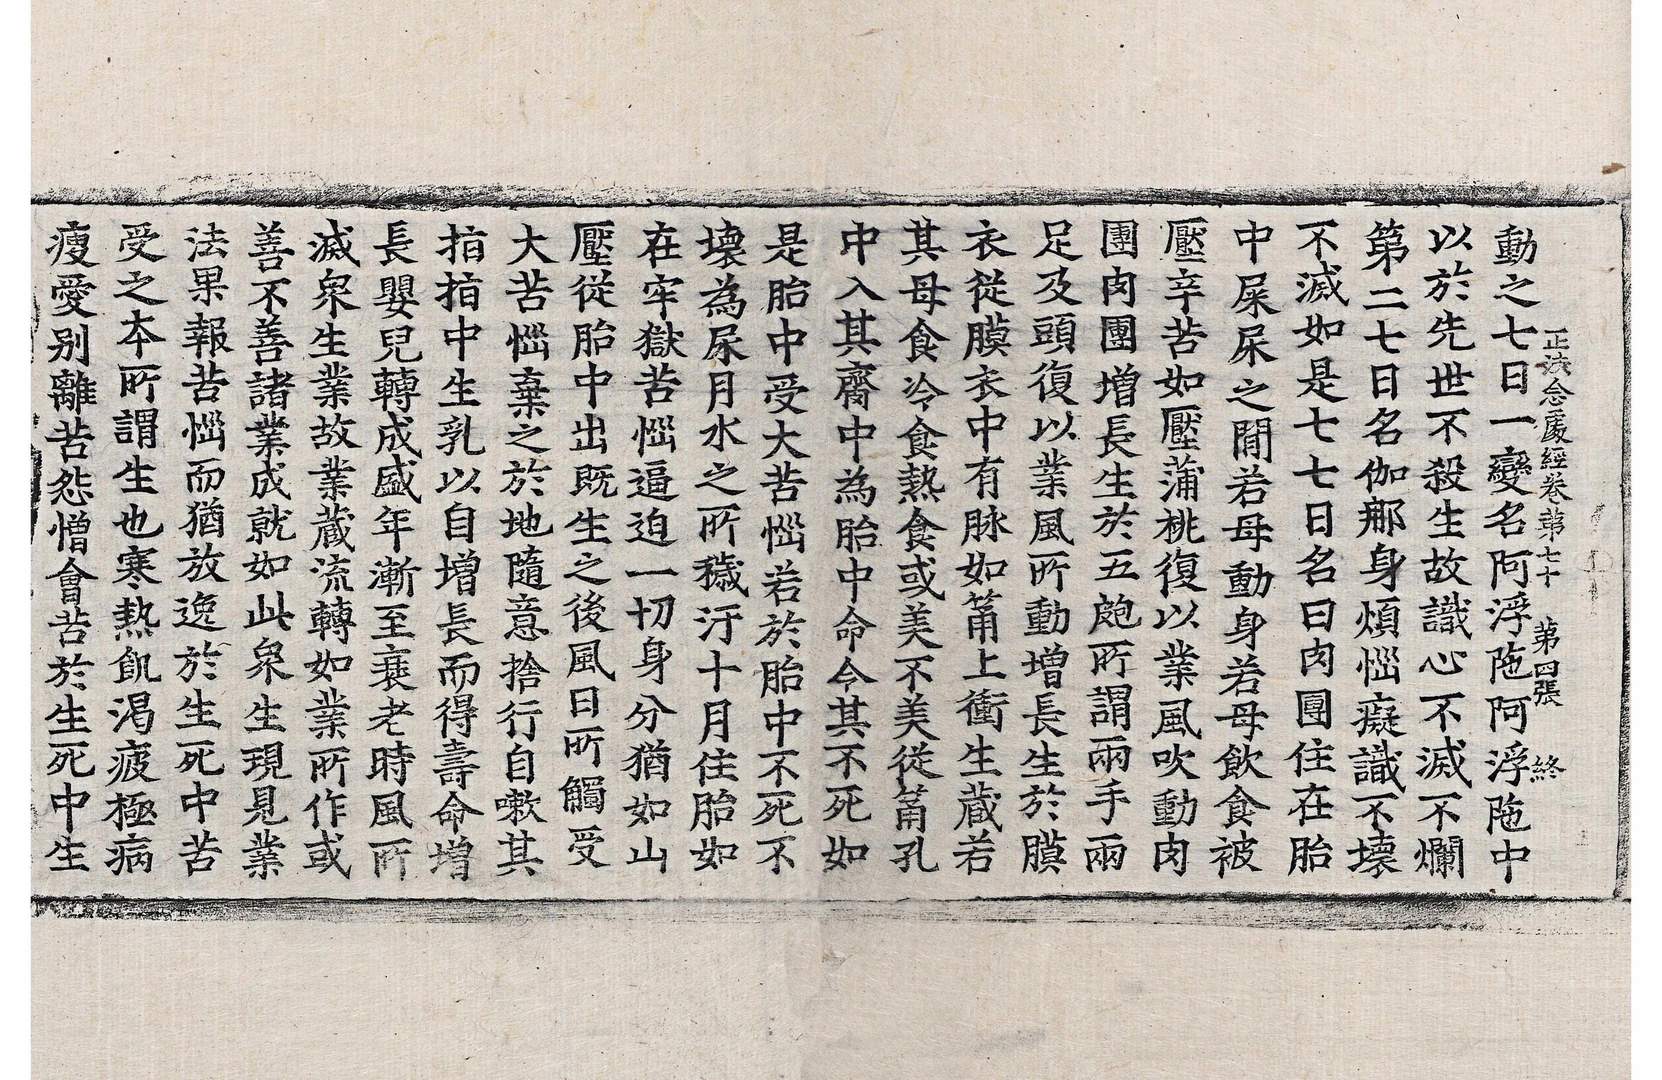 正法念處經卷第七十 第四張 終
動之七日一變名阿浮陁阿浮陁中
以於先世不殺生故識心不滅不爛
第二七日名伽那身煩惱癡識不壞
不滅如是七七日名曰肉團住在胎
中屎尿之間若母動身若母飲食被
壓辛苦如壓蒲桃復以業風吹動肉
團肉團增長生於五皰所謂兩手兩
足及頭復以業風所動增長生於膜
衣從膜衣中有脉如筩上衝生藏若
其母食冷食熱食或美不美從筩孔
中入其齊中為胎中命令其不死如
是胎中受大苦惱若於胎中不死不
壞為尿月水之所穢汙十月住胎如
在牢獄苦惱逼迫一切身分猶如山
壓從胎中出既生之後風日所觸受
大苦惱棄之於地隨意捨行自嗽其
指指中生乳以自增長而得壽命增
長嬰兒轉成盛年漸至衰老時風所
滅衆生業故業藏流轉如業所作或
善不善諸業成就如此衆生現見業
法果報苦惱而猶放逸於生死中苦
受之本所謂生也寒熱飢渴疲極病
瘦愛別離苦怨憎會苦於生死中生